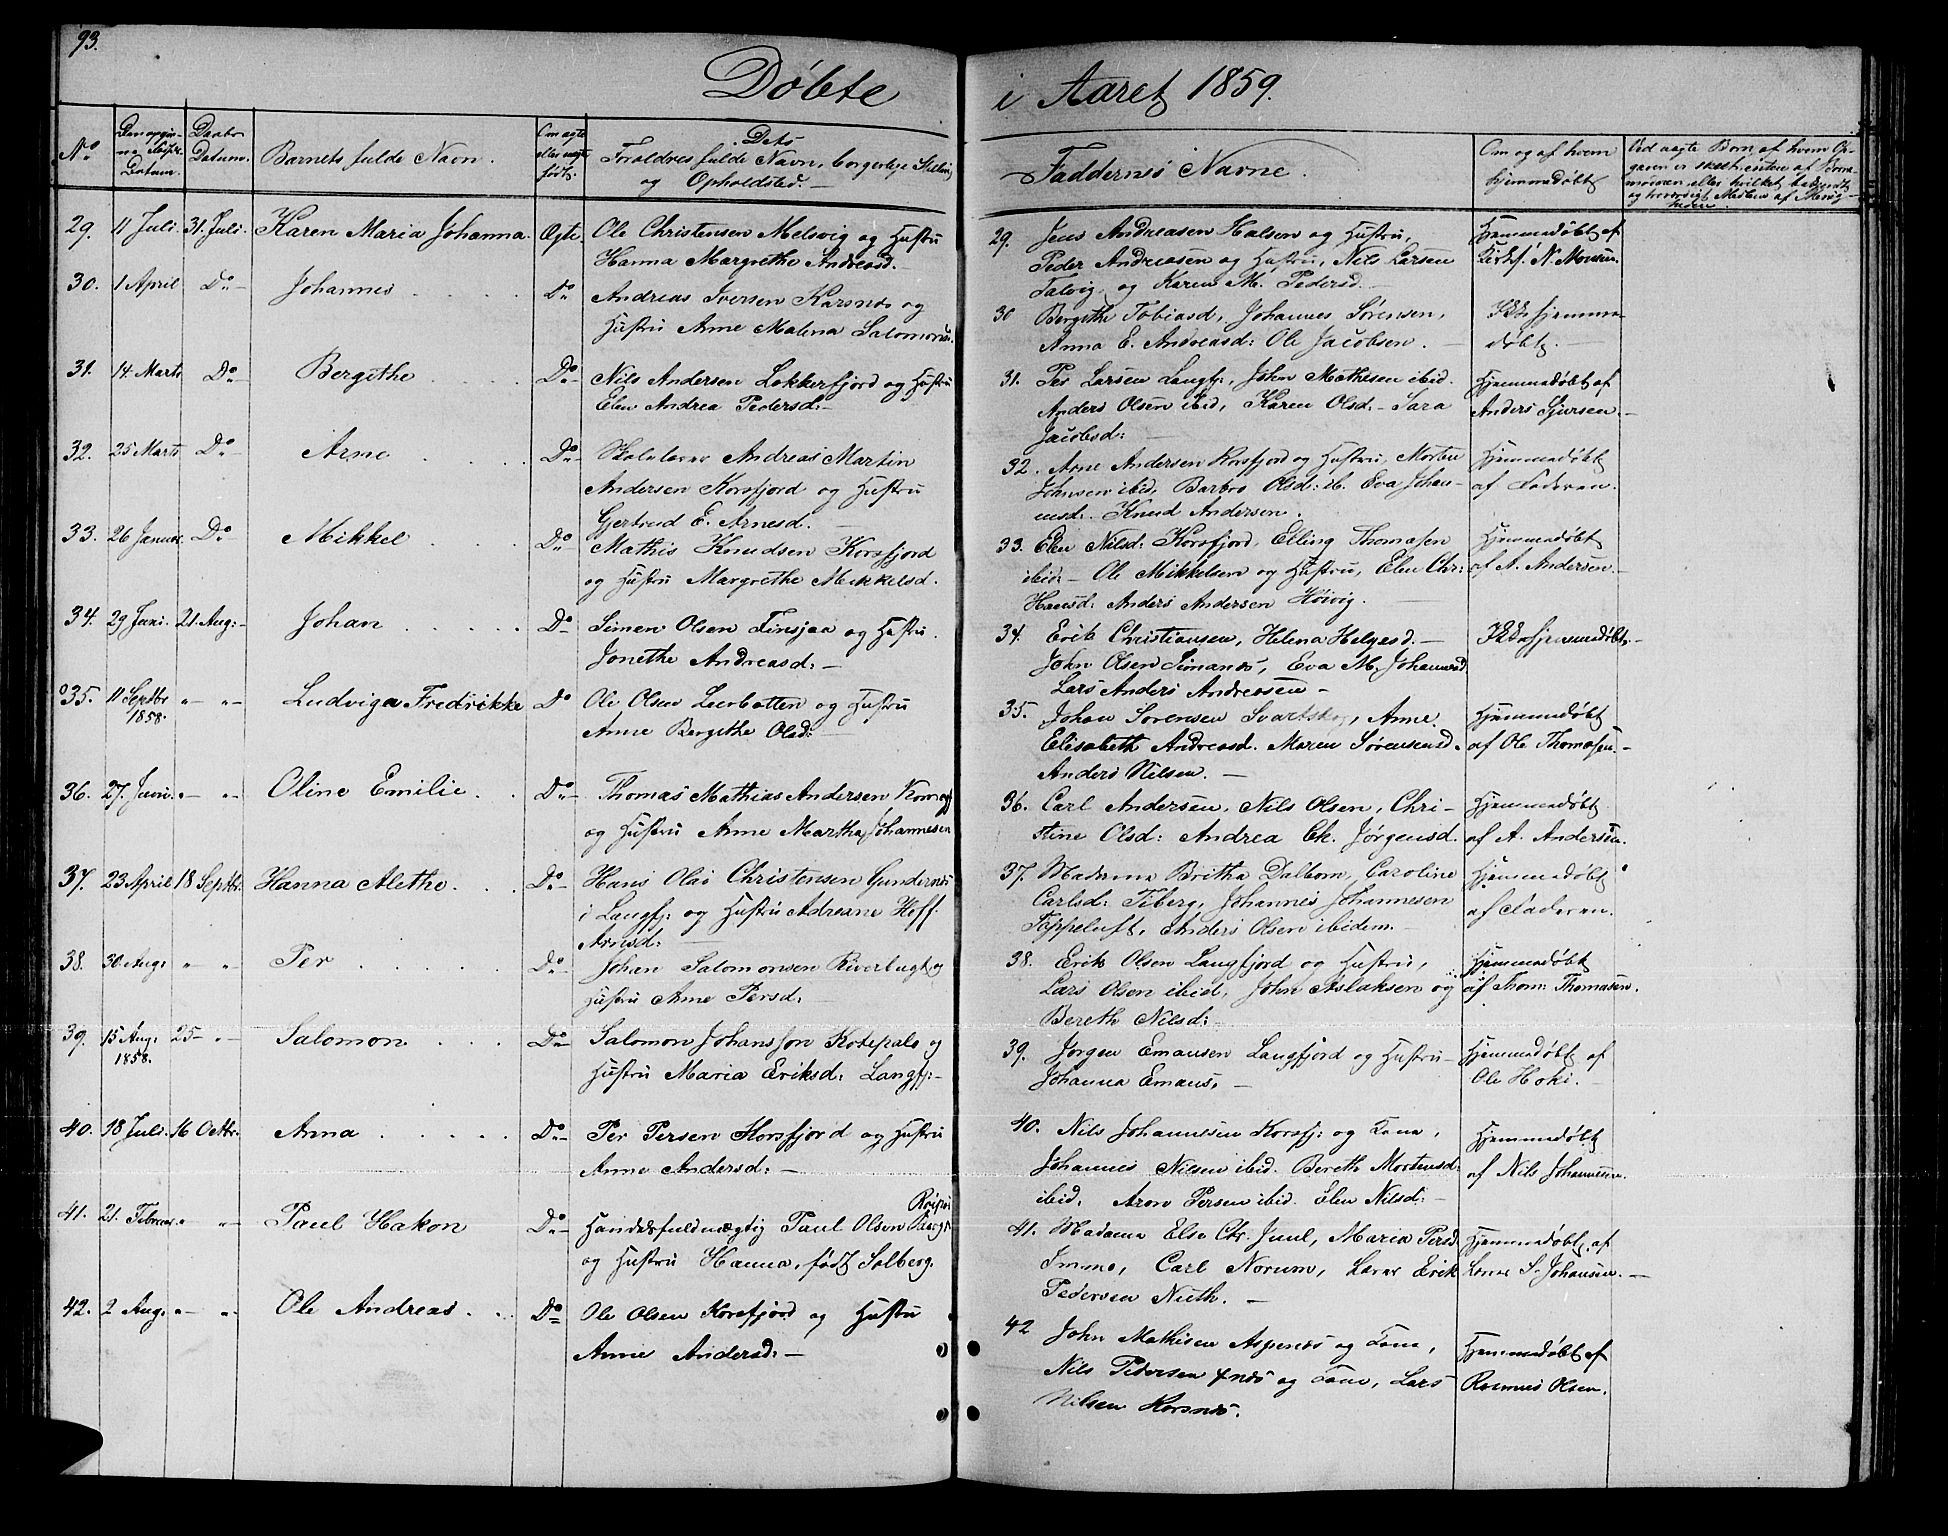 93.
Døbte
i Aaret 1859.
No
Datum.
Daabs
Datum.
Barnets fulde Navn.
Om ægte
eller uægte
født.
Dets
Forældres fulde Navn, borgerlige Stilling
og Opholdsted.
Faddernes Navne.
Om og af hvem
hjemmedøbt
29. 11 Juli. 31. Juli. Karen Maria Johanna. Ægte. Ole Christensen Melsvig og Hustru
Hanna Margrethe Andreasd.
30. 1 April Do Johannes Do Andreas Iversen Karsnes og
Hustru Anne Malena
31. 14. Marts Do Bergithe Do Nils Andersen Lokkerfjord og Hustru
Elen Andrea Pedersd:
32. 25 Marts Do Arne Do Skolelærer Andreas Martin
Andersen Korsfjord og Hustru
Gjertrud E. Arnesd.
33. 26 Januar Do Mikkel Do Mathis Knudsen Korsfjord
og Hustru Margrethe Mikkelsd.
34. 29 Juni. 21. Aug: Johan Do Simen Olsen Finsjaa og Hustru
Jonethe Andreasd:
35. 11 Septbr 1858. " " Ludviga Fredrikke Do Ole Olsen Leerbotten og Hustru
Anne Bergithe Olsd:
36. 27. Juni. " " Oline Emilie Do Thomas Mathias Andersen
og Hustru Anne Martha Johannesen
37. 23 April 18 Septbr. Hanna Alethe Do Hans Olai Christensen
i Langfj: og Hustru Adreane Hoff
Arnsd:
38. 30. Aug: " " Per Do Johan Salomonsen Riverbugt og
Hustru Anne Persd:
39. 15 Aug: 1858. 25 " Salomon Do Salomon Johansson og
Hustru Maria Eriksd: Langfj:
40. 18 Juli. 16 Octbr. Anna Do Per Persen Korsfjord og Hustru
Anne Andersd:
41. 21. Februar. " " Paul Hakon Do Handelsfuldmægtig Paul Olsen
og Hustru Hanna, født Solberg.
42. 2 Aug: " " Ole Andreas Do Ole Olsen Korsfjord og Hustru
Anne Andersd:
29. Jens Andreasen Halsen og Hustru, Hjemmedøbt af
Peder Andreasen og Hustru, Nils Larsen
Talvig, og Karen M. Pedersd.
30 Bergithe Tobiasd, Johannes Sørensen, Ikke hjemme
Anna E. Andreasd: Ole Jacobsen. døbt.
31. Per Larsen Langfj:, John Mathisen ibid. Hjemmedøbt af
Anders Olsen ibid, Karen Olsd. Sara Anders Sjursen.
Jacobsd:
32. Arne Andersen Korsfjord og Hustru, Morten Hjemmedøbt
Johnsen ibid, Barbro Olsd: ib. Eva Johan- af Faderen.
nesd. Knud Andersen.
33. Elen Nilsd: Korsfjord, Elling Thomasen Hjemmedøbt
ibid: Ole Mikkelsen og Hustru, Elen Chr: af A. Andersen.
Hansd: Anders Andersen Høivig.
34. Erik Christiansen, Helena Helgesd. Ikke hjemmedøbt.
John Olsen Simanes, Eva M. Johannesd
Lars Anders Andreasen
35. Johan Sørensen Svartskog, Anne Hjemmedøbt
Elisabeth Andreasd. Maren Sørensensd. af Ole Thomasen.
Anders Nilsen.
36. Carl Andersen, Nils Olsen, Chri- Hjemmedøbt
stine Olsd: Andrea Jørgensd. af A. Andersen.
37. Madame Britha Dalbom, Caroline Hjemmedøbt
Carlsd: Tiberg, Johannes Johannesen af Faderen.
Toppeluft, Anders Olsen ibidem.
38. Erik Olsen Langfjord og Hustru, Hjemmedøbt
Lars Olsen ibid, John Aslaksen og af Thom: Thomasen.
Bereth Nilsd:
39. Jørgen Emausen Langfjord og Hustru Hjemmedøbt af
Johanna Emaus. Ole Hoki.
40. Nils Johannesen Korsfj: og Kone, Hjemmedøbt
Johannes Nilsen ibid. Bereth Mortensd: af Nils Johannesen.
ibid. Aron Persen ibid. Elen Nilsd:
41. Madame Else Chr. Juul, Maria Persd. Hjemmedøbt af
Carl Norum, Lærer Erik Lærer S. Johansen.
Pedersen Nieth.
42 John Mathisen Aspenes og Kone, Hjemmedøbt af
Nils Pedersen og Kone, Lars Rasmus Olsen.
Nilsen Korsnes.